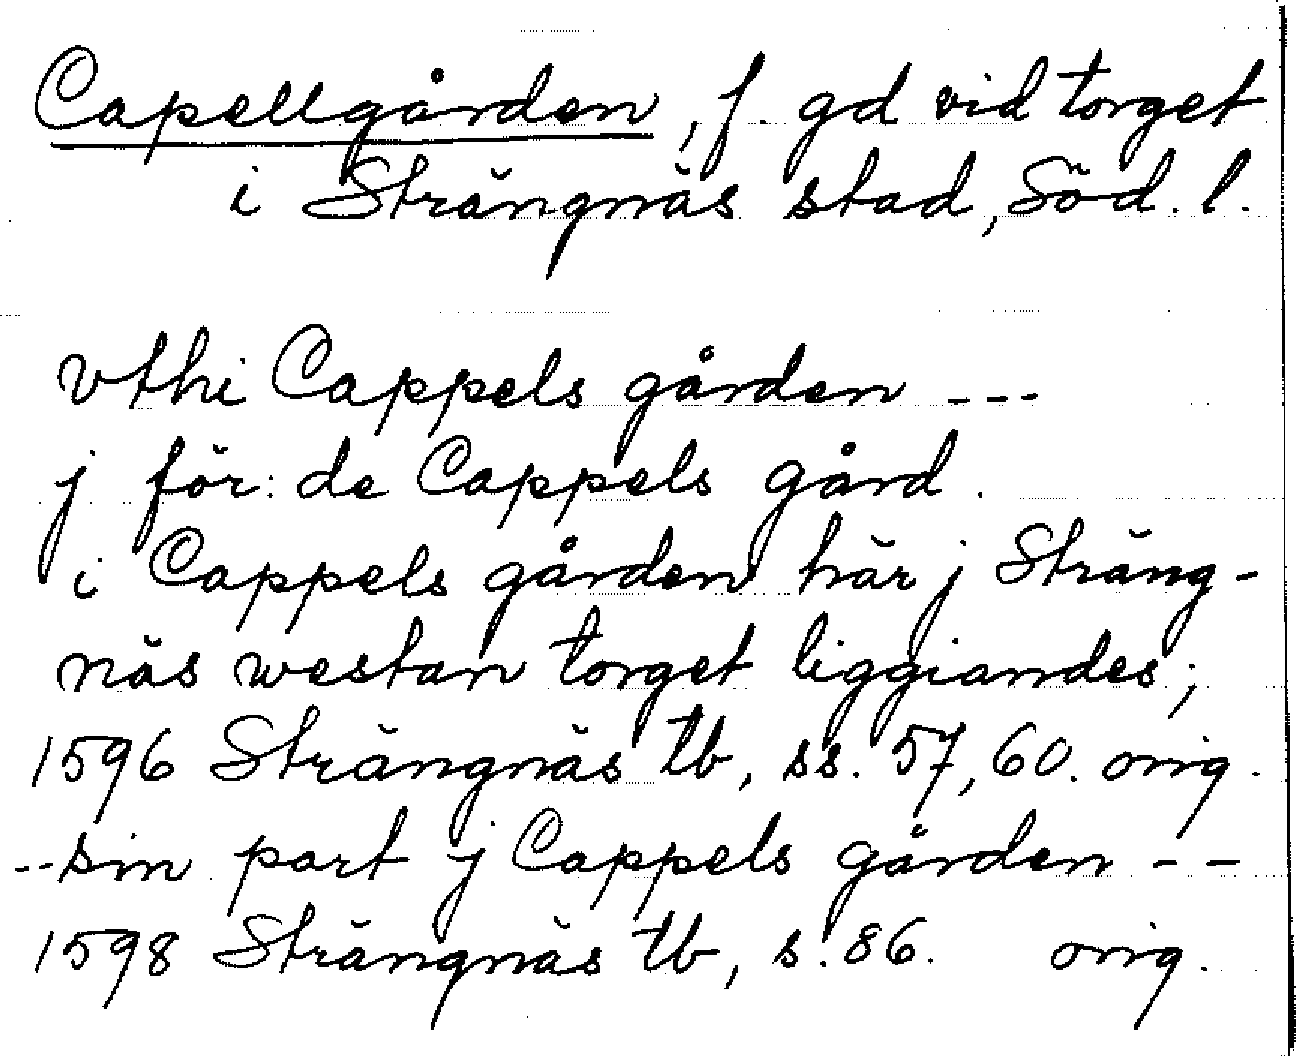 Capellgården, f. gd vid torget
i Strängnäs stad, Söd. l.
vthi Cappels gården ---
j för: de Cappels gård.
i Cappels gården här j Sträng-
näs westan torget liggiandes;
1596 Strängnäs tb, ss. 57, 60. orig.
-- sin part j Cappels gården --
1598 Strängnäs tb, s. 86. orig.